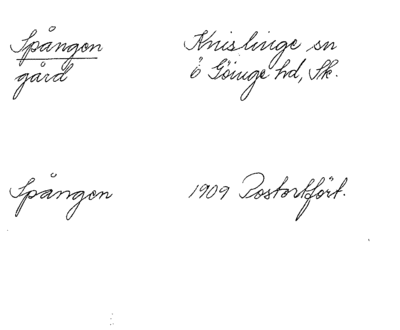 Spången Knislinge sn
gård ö Göinge hd, Sk.
Spången 1909 Postortfört.